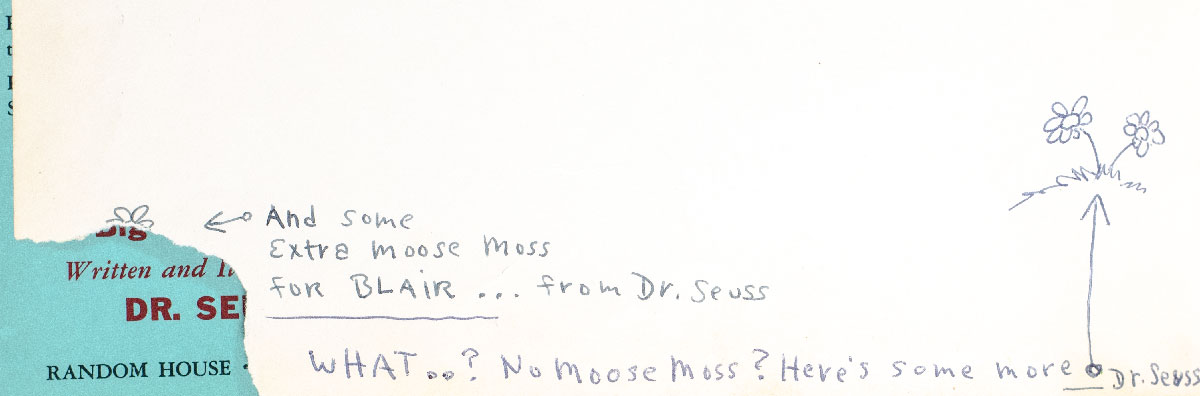 And some
Extra moose Moss
for BLAIR ... from Dr. Seuss
WHAT..? No Moose Moss? Here's some more
Dr. Seuss
Big
Written and
DR. SE
RANDOM HOUSE